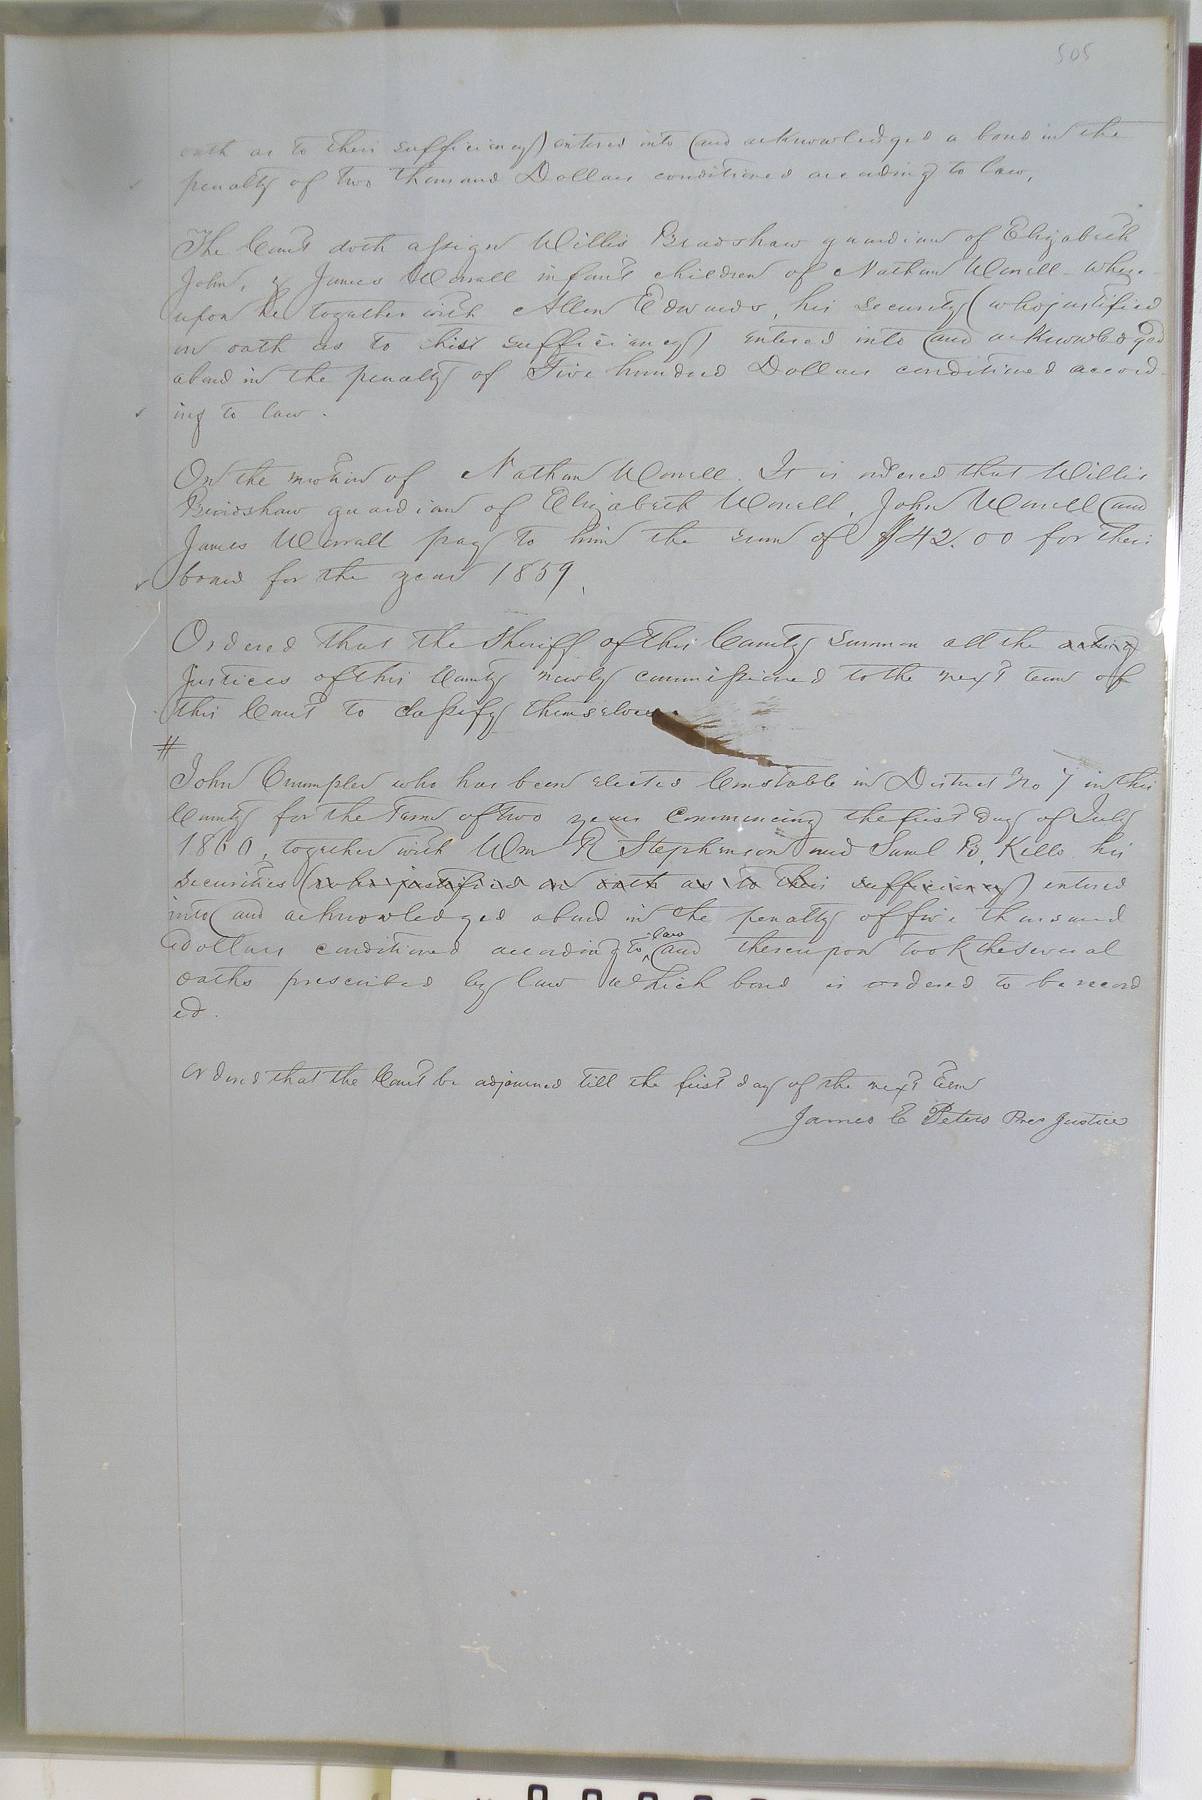 505
oath as to their sufficiency) entered into and acknowledged a bond in the
penalty of two thousand Dollars conditioned according to law,
The Court doth assign Willis Bradshaw guardian of Elizabeth
John, & James Worrell infant children of Nathan Worrell - where-
upon he together with Allen Edwards, his security (who justified
on oath as to his sufficiency) entered into and acknowledged
a bond in the penalty of Five hundred Dollars conditioned accord-
ing to law.
On the motion of Nathan Worrell. It is ordered that Willis
Bradshaw guardian of Elizabeth Worrell, John Worrell and
James Worrall pay to him the sum of $42.00 for their
board for the year 1859,
Ordered that the Sheriff of this County summon all the acting
Justices of this County newly commissioned to the next term of
this Court to classify themselves.
#
John Crumpler who has been elected Constable in District No 7 in this
County for the Term of two years commencing the first day of July
1860, together with Wm R Stephenson and Saml B. Kello his
securities (who justified on oath as to their sufficiency) entered
into and acknowledged a bond in the penalty of five thousand
Dollars conditioned according to law and thereupon took the several
oaths prescribed by law which bond is ordered to be record
ed.
Ordered that the Court be adjourned till the first day of the next Term
James E Peters Pres Justice